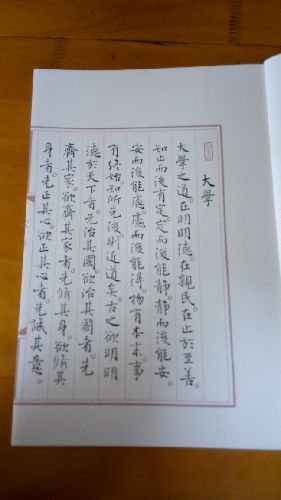 大學
大學之道。在明明德。在親民。在止於至善。
知止而後有定。定而後能靜。靜而後能安。
安而後能慮。慮而後能得。物有本末。事
有終始。知所先後。則近道矣。古之欲明明
德於天下者。先治其國。欲治其國者。先
齊其家。欲齊其家者。先脩其身。欲脩其
身者。先正其心。欲正其心者。先誠其意。